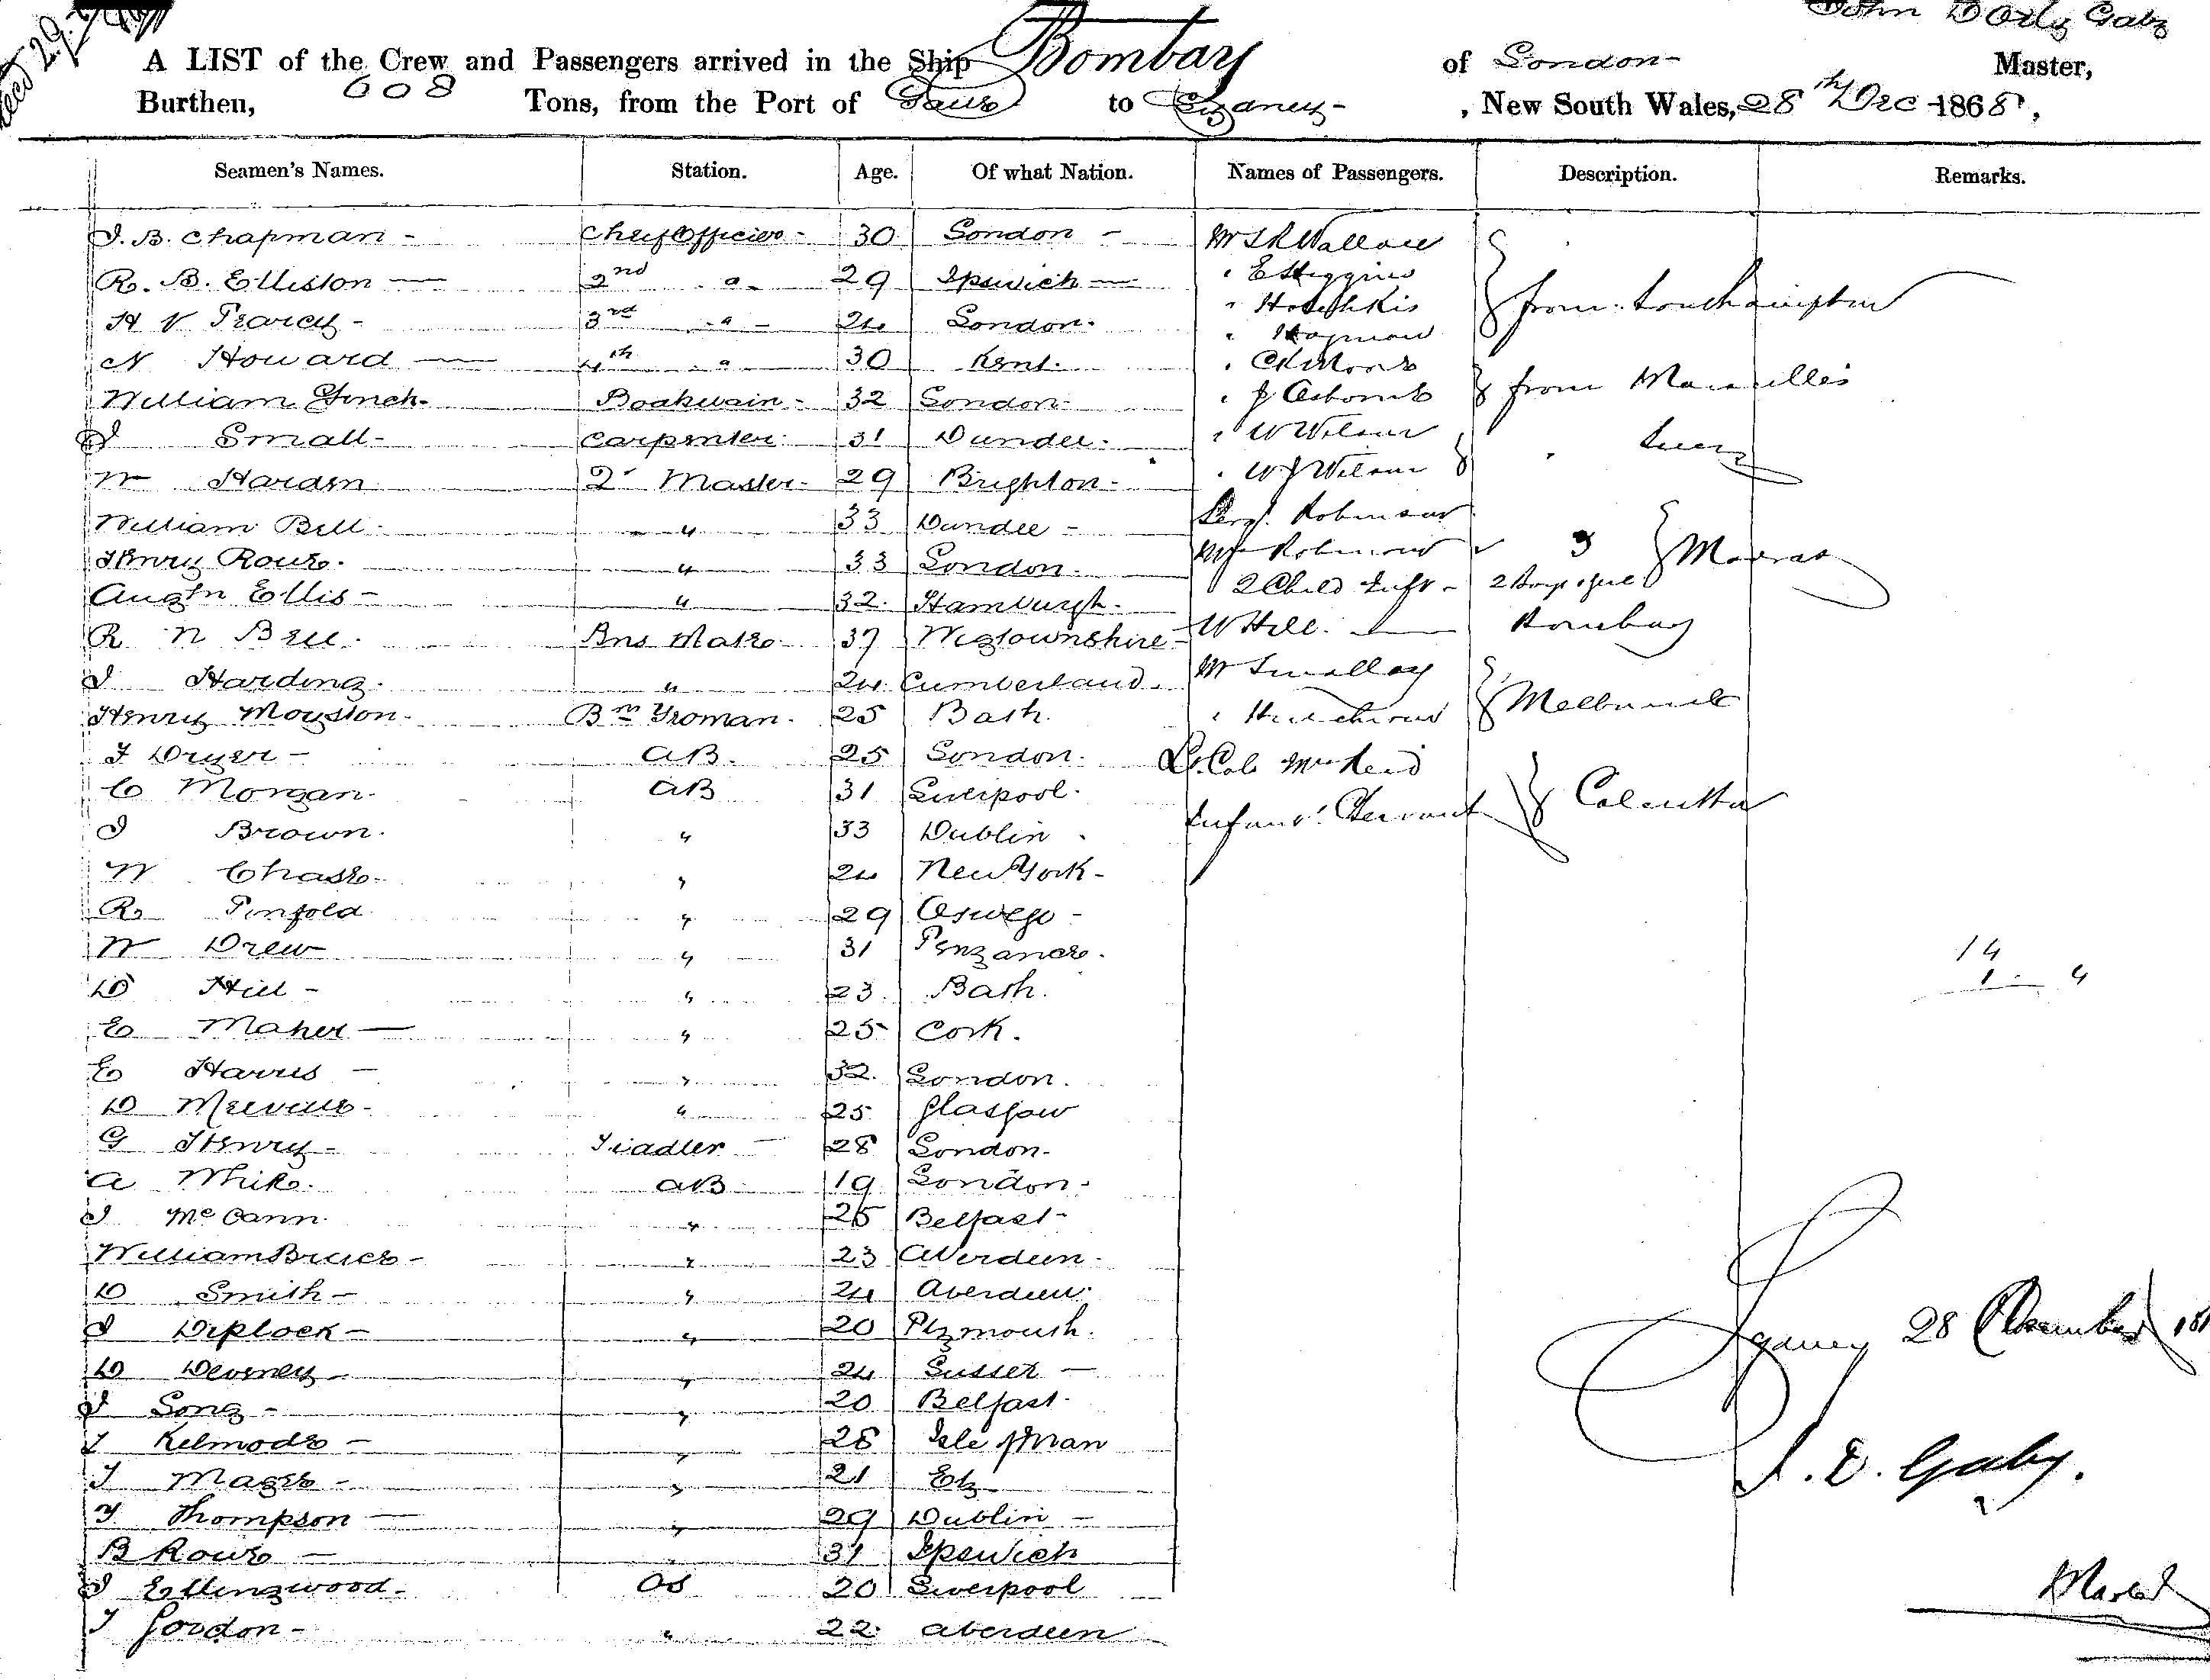 John Gaby
A LIST of the Crew and Passengers arrived in the Ship Bombay of London Master,
Burthen, 608 Tons, from the Port of Galle to Sydney, New South Wales, 28th Dec 1868,
Seamen's Names. Station. Age. Of what Nation. Names of Passengers. Description. Remarks.
J. B. Chapman - Chief Officer - 30 London - Mr Wallace
R. B. Elliston - 2nd " 29 Ipswich - " E Higgins
H V Pearcy - 3rd " 24 London. " Hotchkis from Southampton
N Howard - 4th " 30 Kent. " Moore
William Finch - Boatswain - 32 London - " J Osborne from Marseilles
J Small - Carpenter. 31 Dundee. " W Wilson
W Harden Qr Master - 29 Brighton - " W J Wilson " Suez
William Bell. " 33 Dundee - Sergt. Robinson
Henry Rouse. " 33 London. Mrs Robinson 3 Madras
Augtn Ellis - " 32. Hamburgh. 2 Child
R N Bell. Bns Mate. 37 Wigtownshire W Hill. Bombay
J Harding. " 24. Cumberland. Mr Smalley
Henry Moyston. Bn Yeoman. 25 Bath. " Melbourne
J Dryer - AB. 25 London. Lt. Col Mrs Reid
C Morgan. AB 31 Liverpool. Infant & Servant Calcutta
J Brown. " 33 Dublin.
W Chase. " 24 New York -
R Pinfold " 29 Oswego -
W Drew " 31 Penzance. 14
D Hill - " 23. Bath. 1 - 4
E Maher - " 25 Cork.
E Harris - " 32. London.
D Melville - " 25 Glasgow
G Henry - Fiddler - 28 London -
A White. AB 19 London -
J McCann. " 25 Belfast -
William Bruce - " 23 Aberdeen.
D Smith - " 24 Aberdeen.
J Diplock - " 20 Plymouth. Sydney 28 December
D Deveney - " 24 Sussex -
J Long - " 20 Belfast.
T Kelmode - " 28 Isle of Man
J Magee - " 21 Ely J. D. Gaby.
T Thompson - " 29 Dublin -
B Rowe - " 31 Ipswich
J Ellingwood - OS 20 Liverpool Master
J Gordon - " 22. Aberdeen